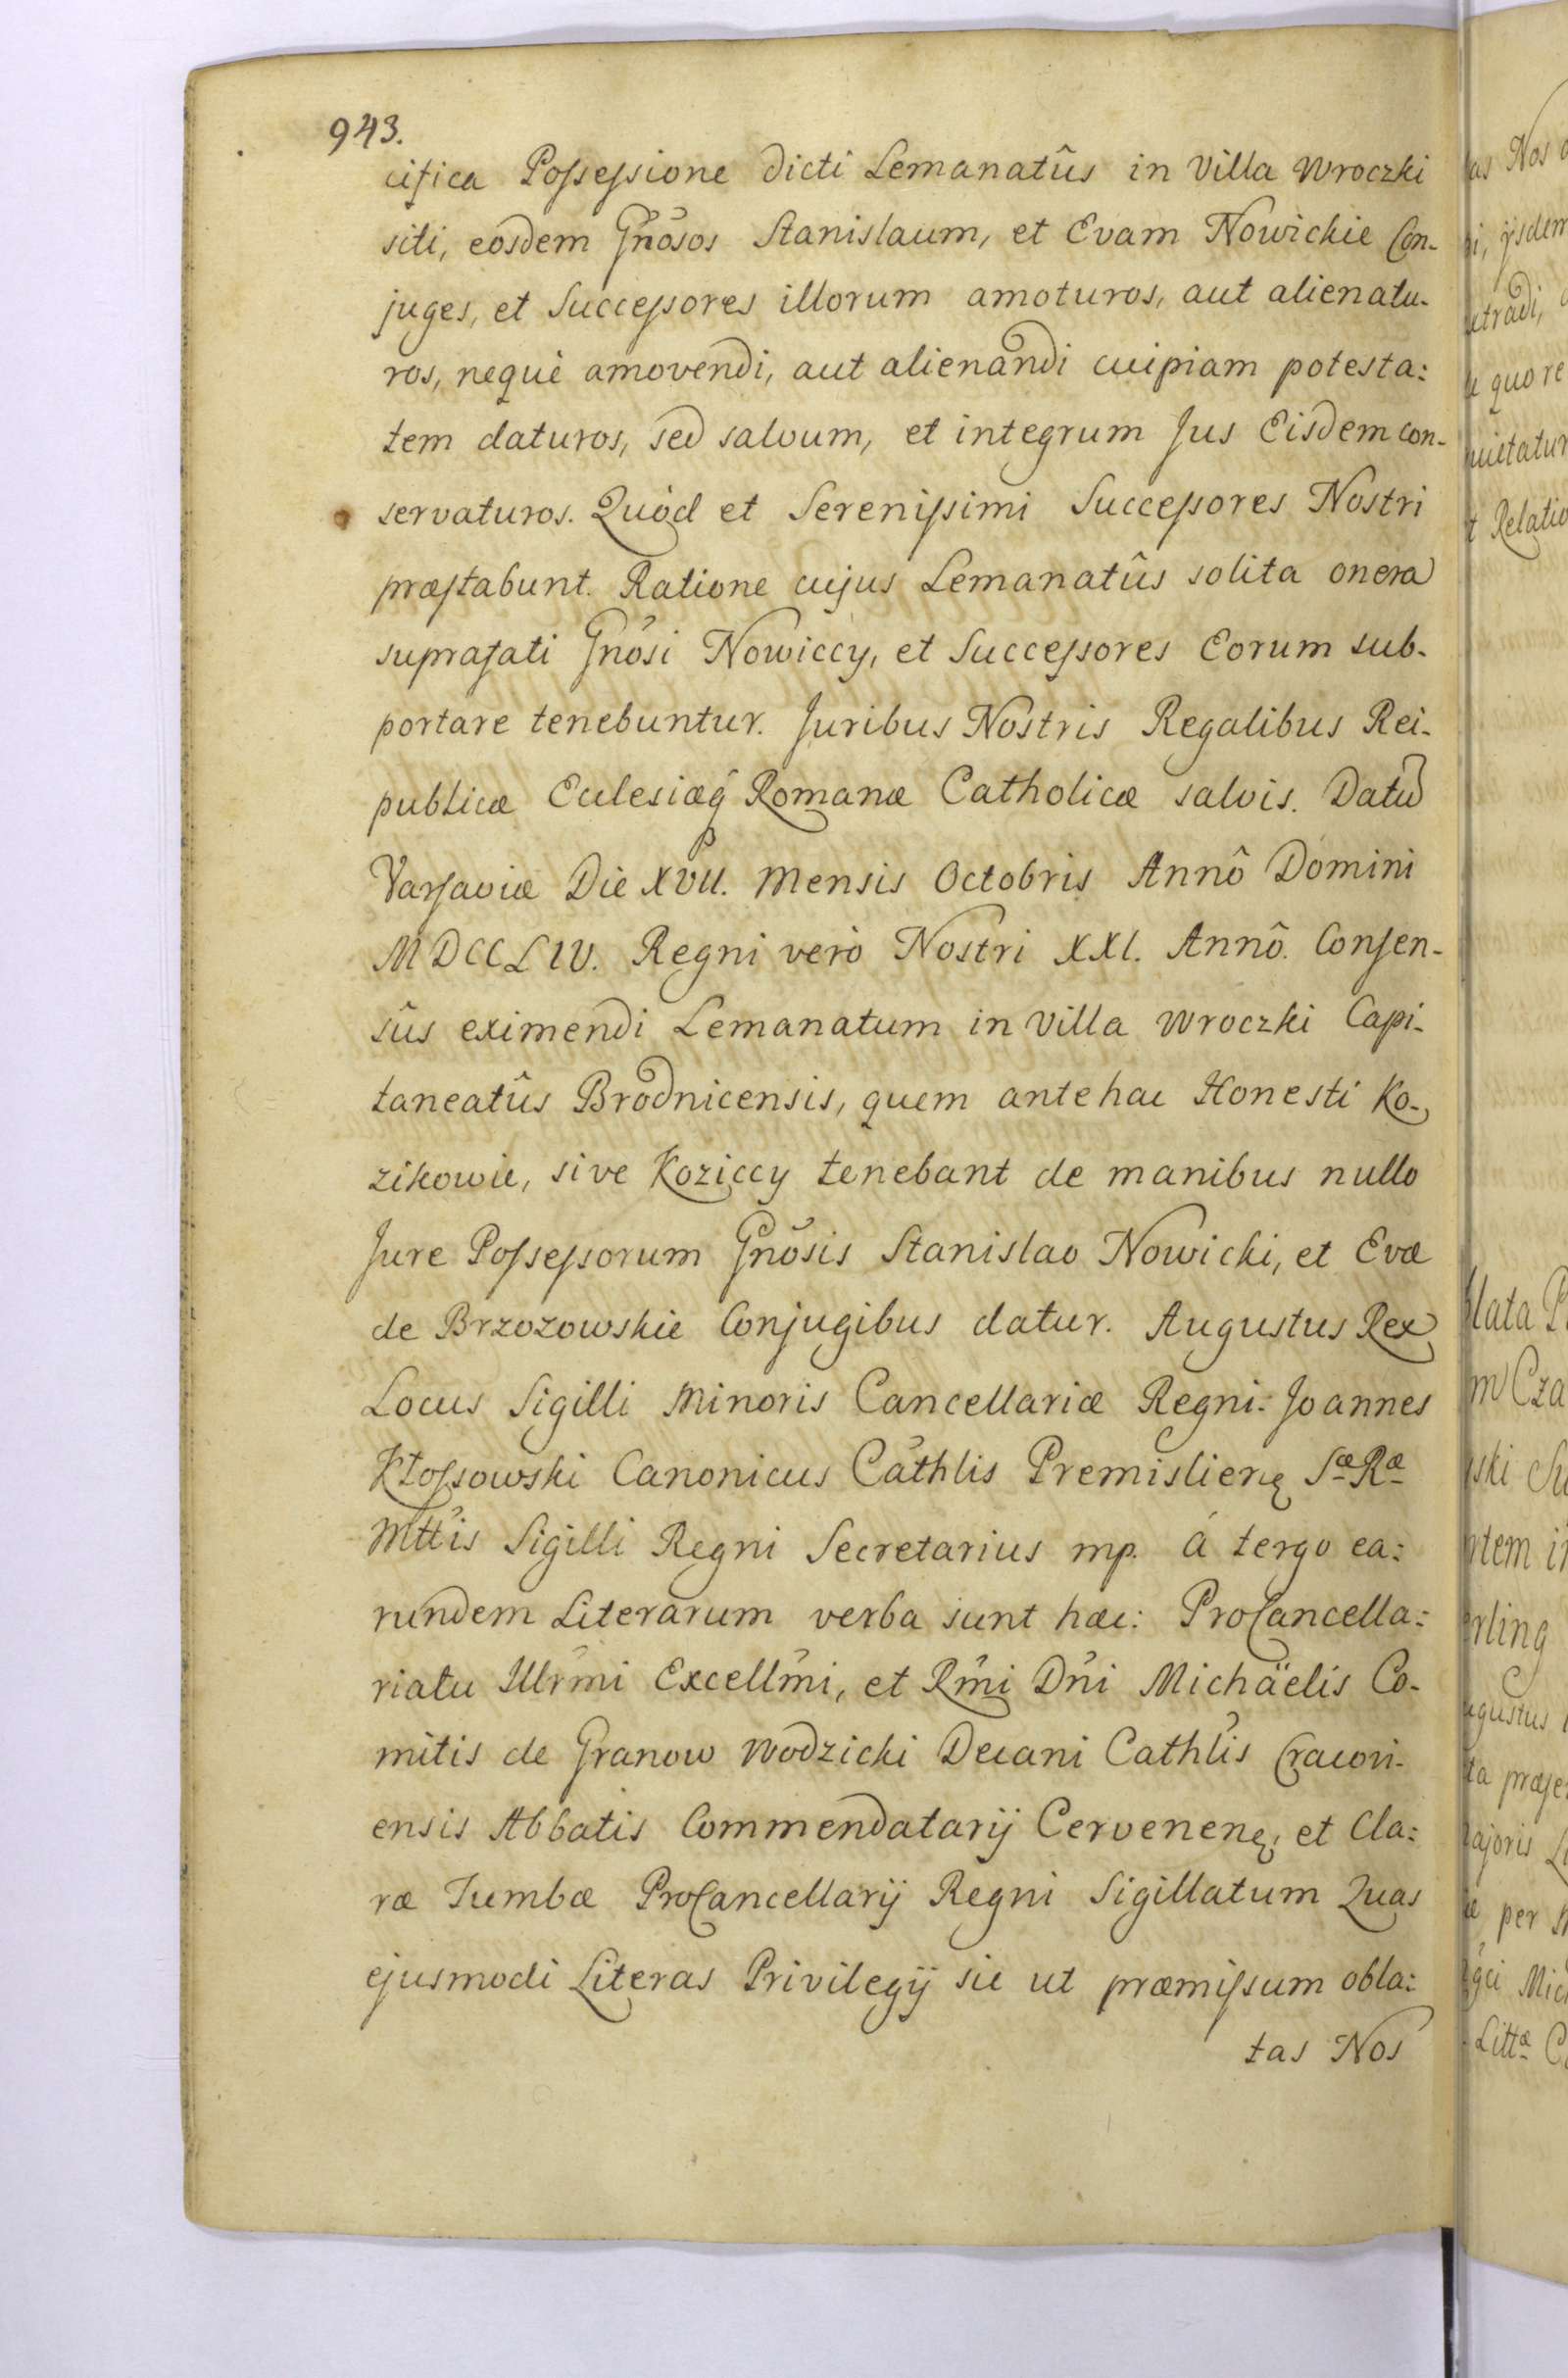 943.
cifica Possessione dicti Lemanatûs in Villa Wroczki
siti, eosdem Gnõsos Stanislaum, et Evam Nowickie Con-
juges, et Successores illorum amoturos, aut alienatu-
ros, nequè amovendi, aut alienandi cuipiam potesta:
tem daturos, sed salvum, et integrum Jus Eisdem con-
servaturos. Quòd et Serenissimi Successores Nostri
præstabunt. Ratione cujus Lemanatûs solita onera
suprafati Gnõsi Nowiccy, et Successores Eorum sub-
portare tenebuntur. Juribus Nostris Regalibus Rei-
publicæ Eclesiæq́ Romanæ Catholicæ salvis. Datũ
Varsaviæ Die XVII. Mensis Octobris Annô Domini
MDCCLIV. Regni verò Nostri XXI. Annô. Consen-
sûs eximendi Lemanatum in Villa Wroczki Capi-
taneatûs Brodnicensis, quem antehac Honesti Ko-
zikowie, sive Koziccy tenebant de manibus nullo
Jure Possessorum Gnõsis Stanislao Nowicki, et Evæ
de Brzozowskie Conjugibus datur. Augustus Rex
Locus Sigilli Minoris Cancellariæ Regni: Joannes
Kłossowski Canonicus Cathlis Premislienę Sæ Ræ
Mttis Sigilli Regni Secretarius mp. á tergo ea:
rundem Literarum verba sunt hæc: ProCancella:
riatu Illrmi Excellmi, et Rmi Dni Michäelis Co-
mitis de Granow Wodzicki Decani Cathlis Cracovi-
ensis Abbatis Commendatarij Cervenenę, et Cla:
ræ Tumbæ ProCancellarij Regni Sigillatum Quas
ejusmodi Literas Privilegij sic ut præmissum obla:
tas Nos